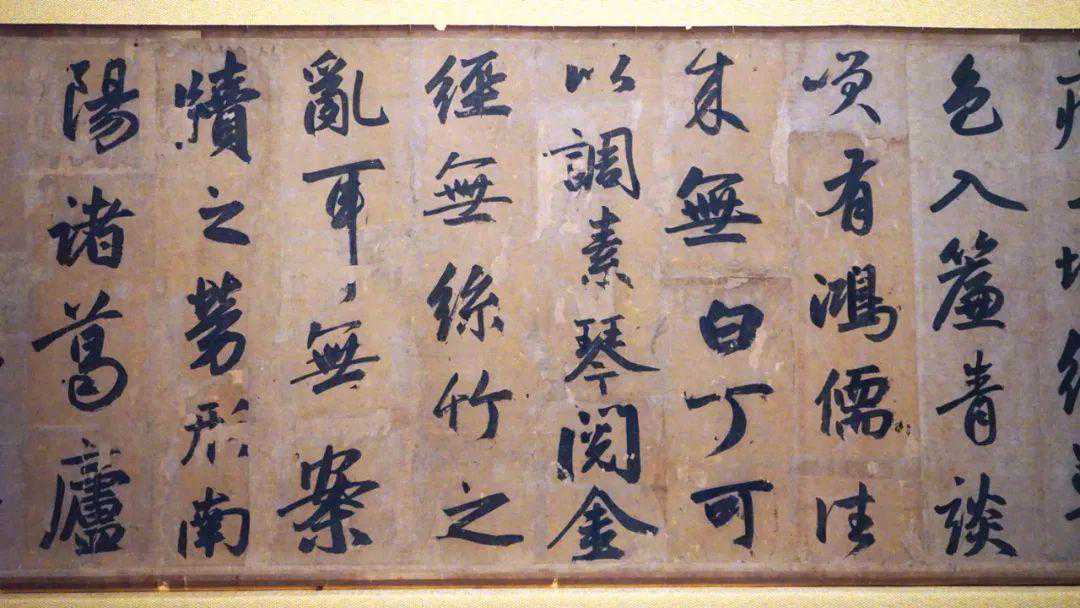 色入簾青談
咲有鴻儒往
来無白丁可
以調素琴閱金
經無絲竹之
亂耳無案
牘之勞形南
陽諸葛廬